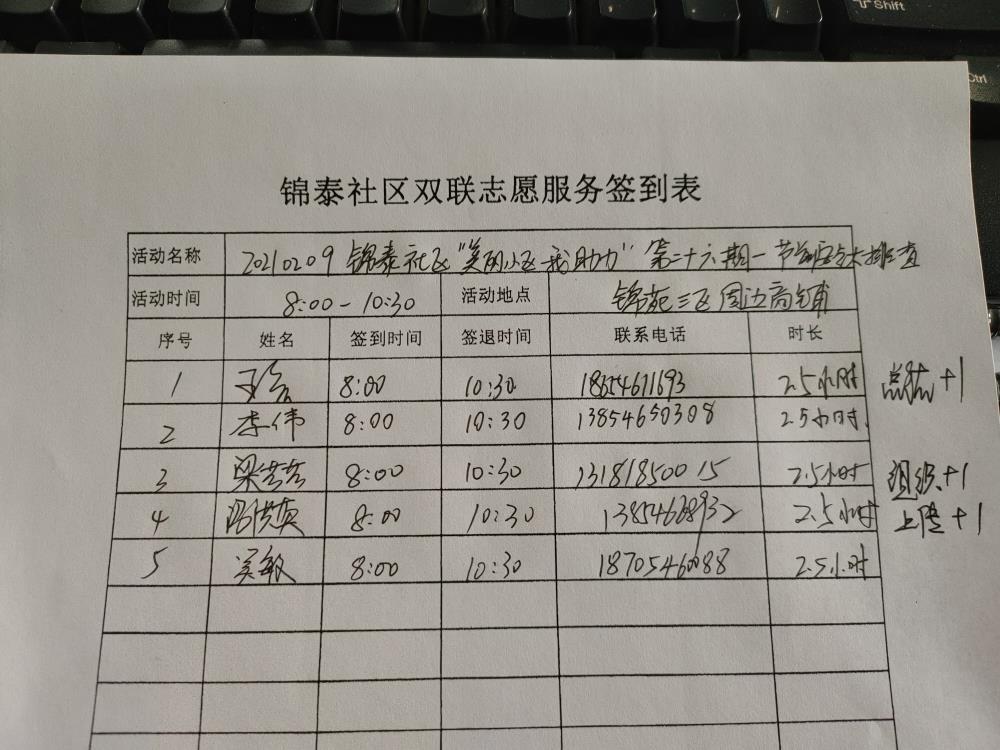 Shift
Ctrl
锦泰社区双联志愿服务签到表
活动名称 20210209 锦泰社区"美丽小区 我助力"第二十六期—节前安全大排查
活动时间 8:00-10:30 活动地点 锦苑三区周边商铺
序号 姓名 签到时间 签退时间 联系电话 时长
1 8:00 10:30 18654671693 2.5小时 点
+1
2 李伟 8:00 10:30 13854650308 2.5小时
3 梁芸芸 8:00 10:30 13181850015 2.5小时 组织+1
4 洪英 8:00 10:30 2.5小时 上传+1
5 吴敏 8:00 10:30 18705460088 2.5小时